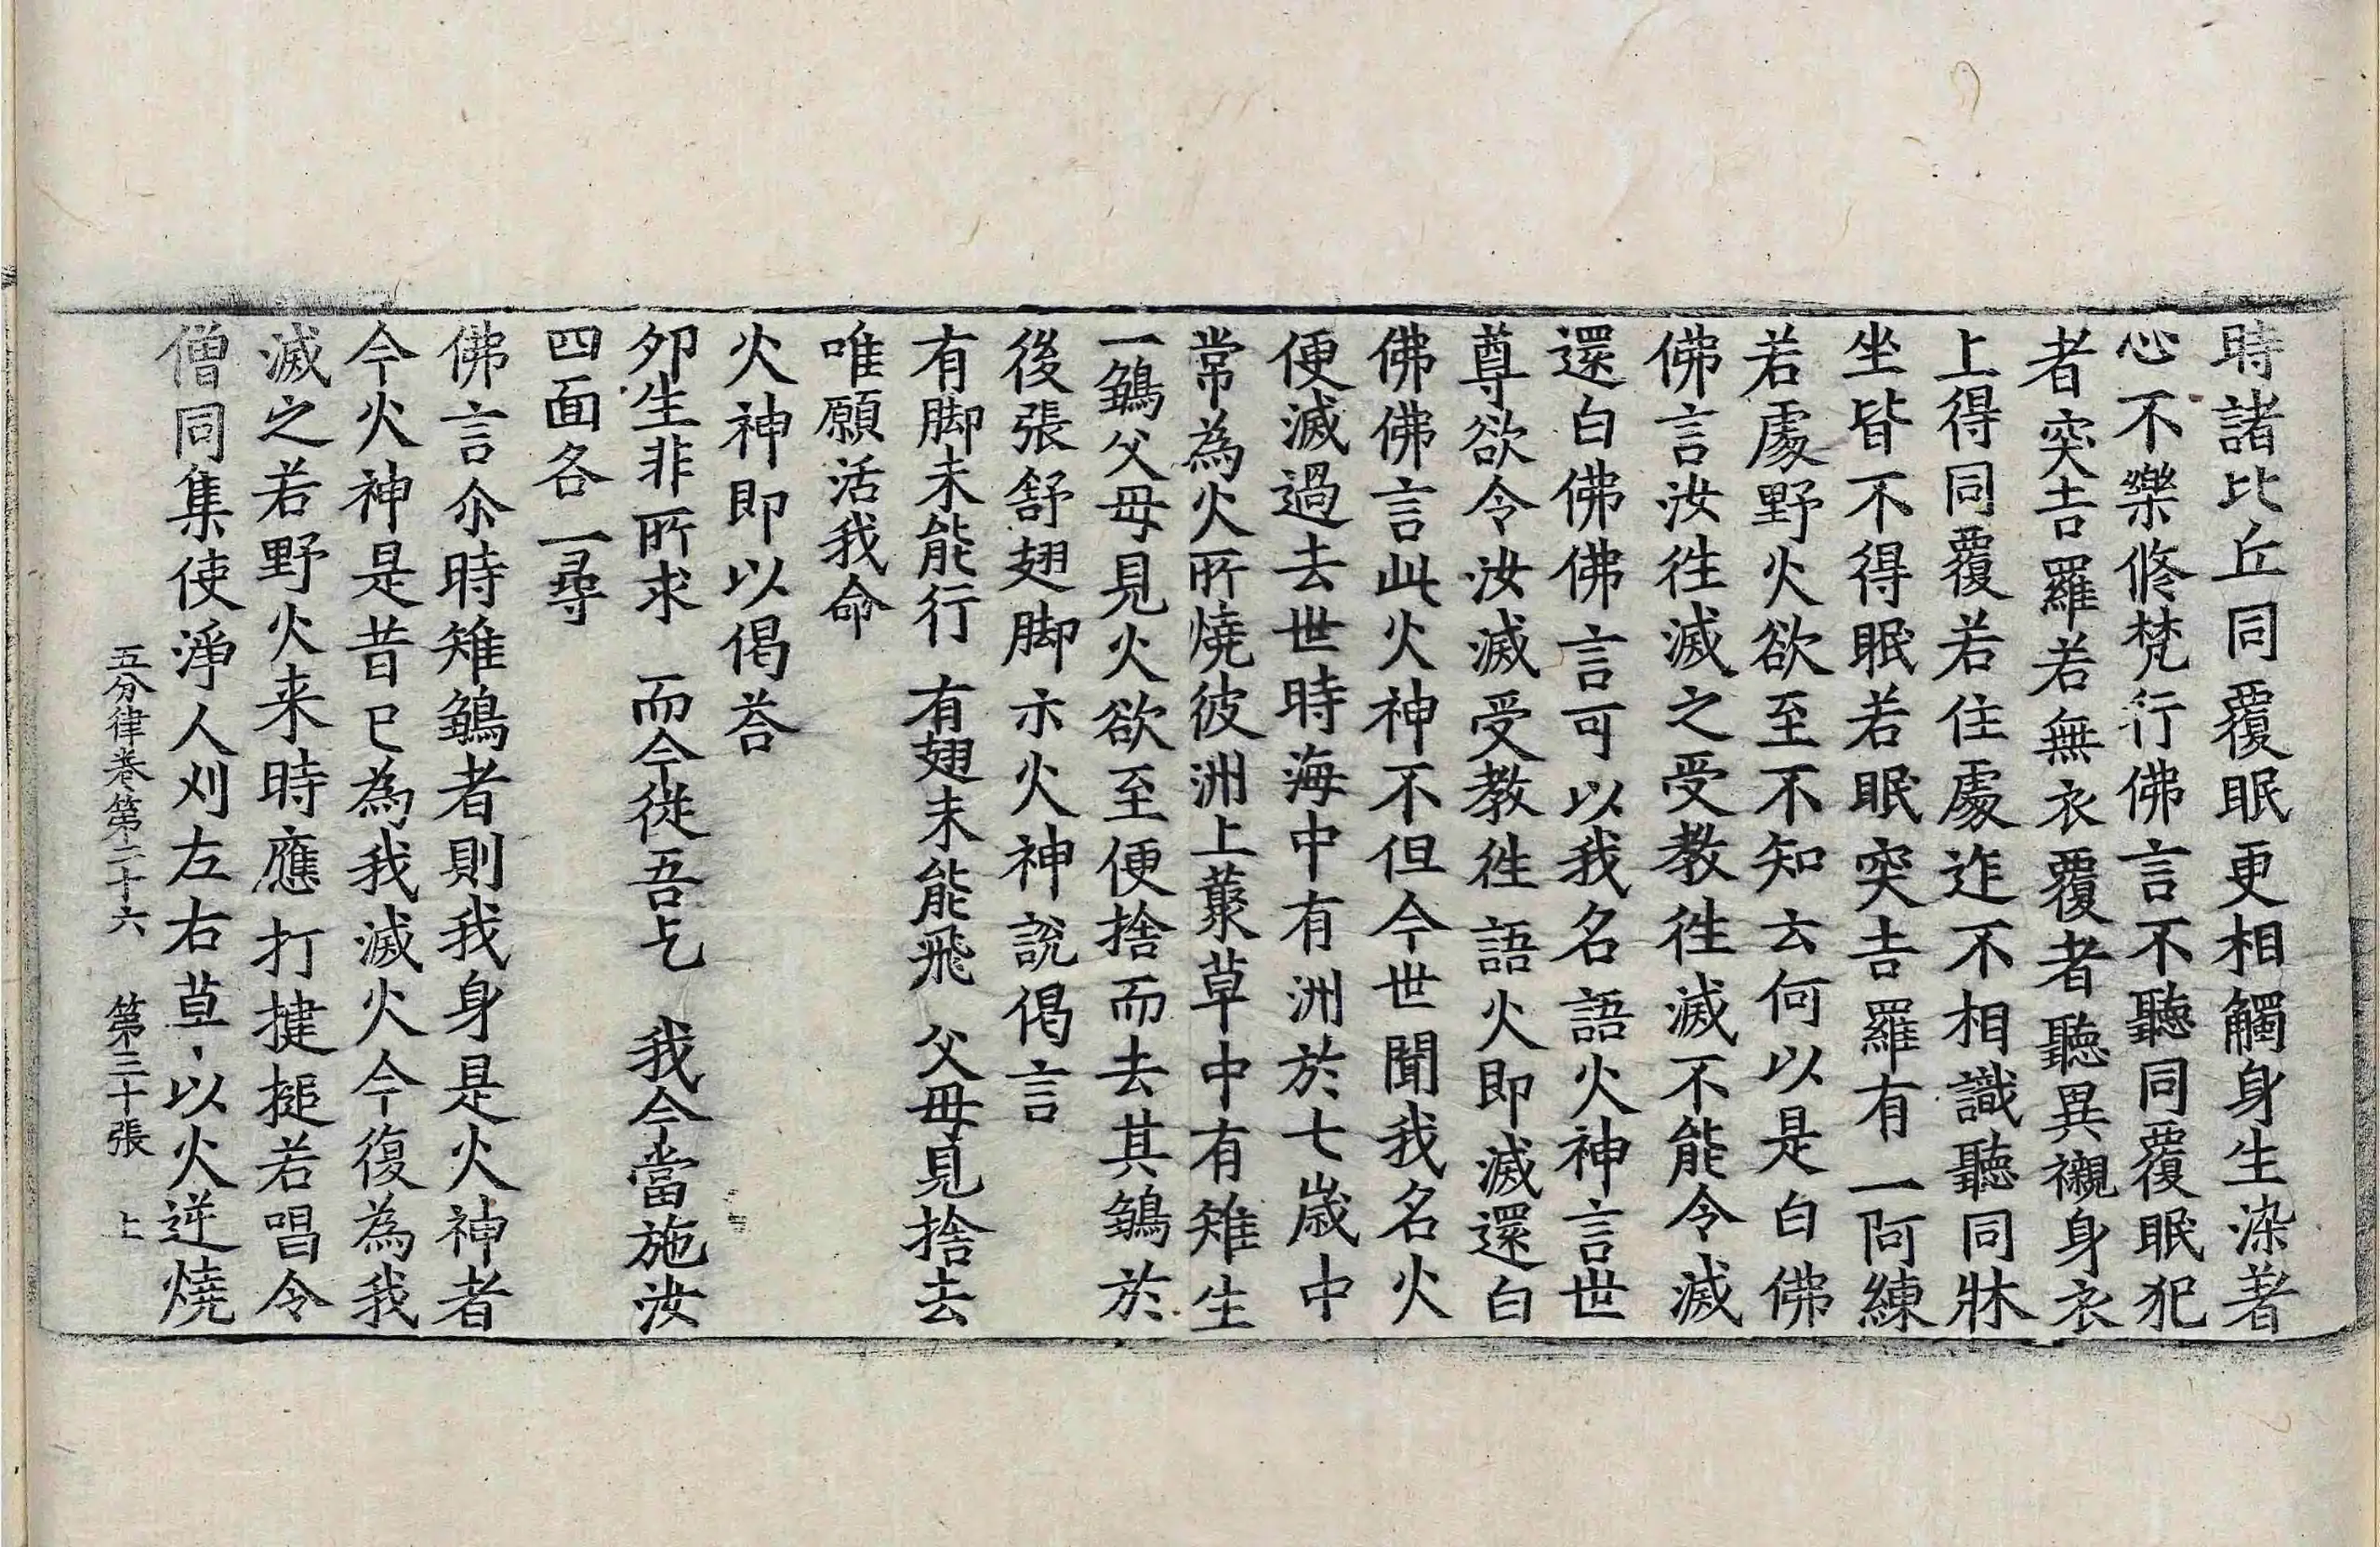 時諸比丘同覆眠更相觸身生染著
心不樂修梵行佛言不聽同覆眠犯
者突吉羅若無衣覆者聽異襯身衣
上得同覆若住處迮不相識聽同牀
坐皆不得眠若眠突吉羅有一阿練
若處野火欲至不知云何以是白佛
佛言汝往滅之受教往滅不能令滅
還白佛佛言可以我名語火神言世
尊欲令汝滅受教往語火即滅還白
佛佛言此火神不但今世聞我名火
便滅過去世時海中有洲於七歲中
常為火所燒彼洲上藂草中有雉生
一鶵父母見火欲至便捨而去其鶵於
後張舒翅脚示火神說偈言
有脚未能行　有翅未能飛　父母見捨去
唯願活我命
火神即以偈荅
夘生非所求　而今從吾乞　我今當施汝
四面各一尋
佛言尒時雉鶵者則我身是火神者
今火神是昔已為我滅火今復為我
滅之若野火来時應打揵搥若唱令
僧同集使淨人刈左右草以火逆燒
五分律卷第二十六　第三十張　上